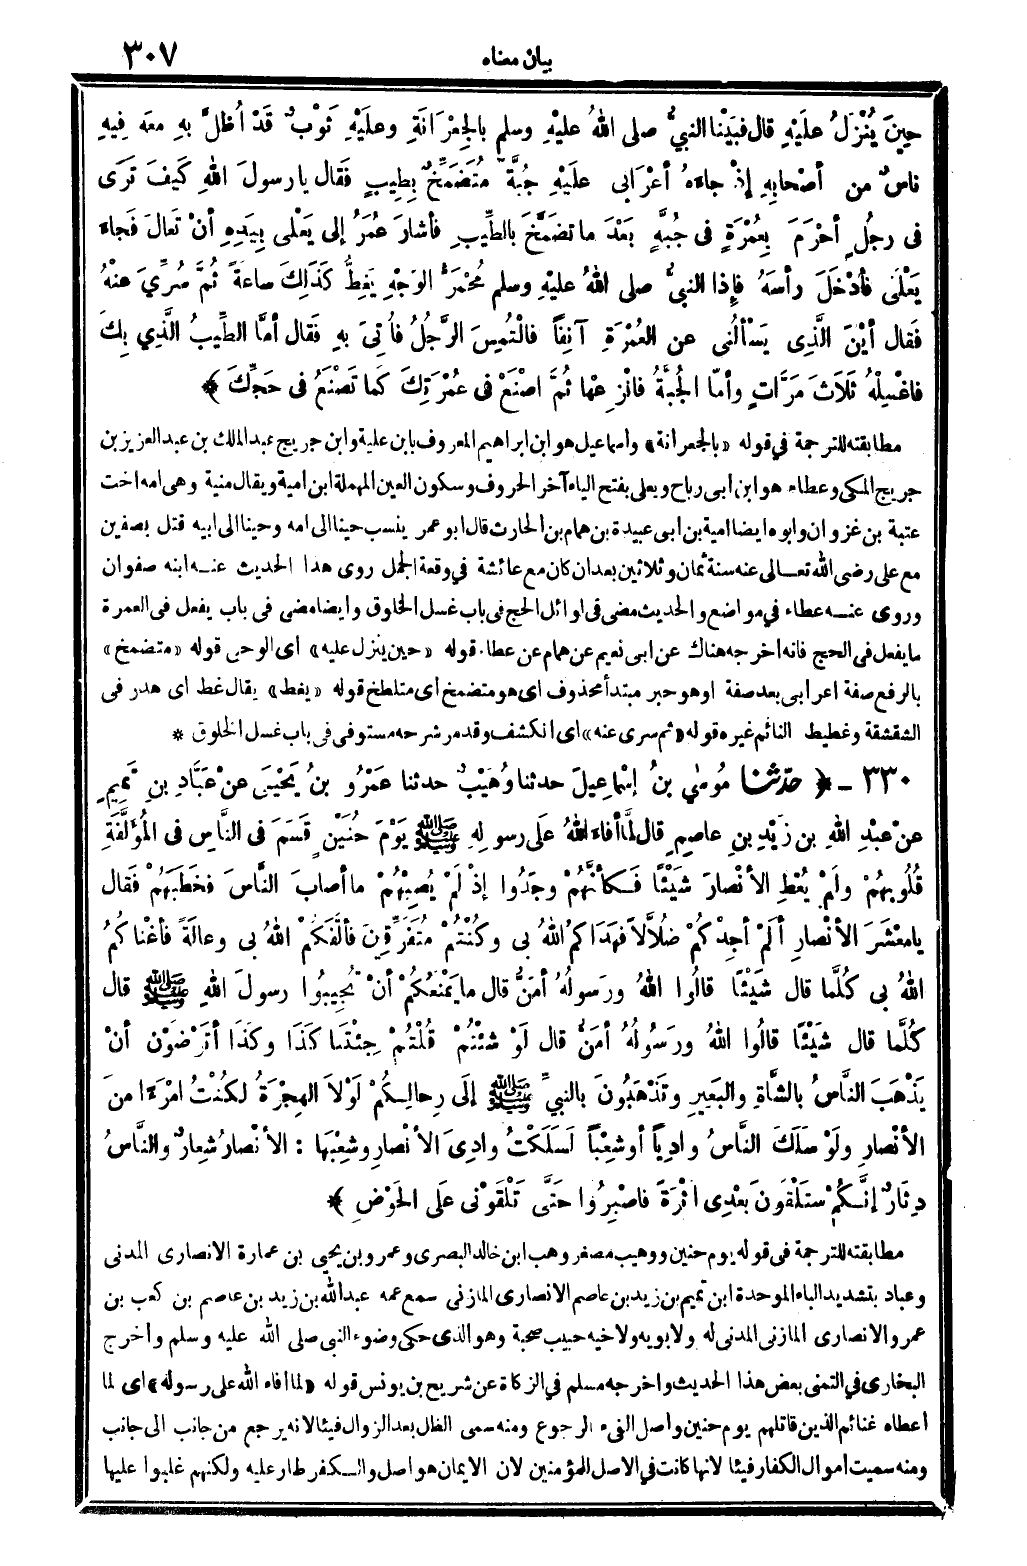 بيان معناه
٣٠٧
حِينَ يُنْزَلُ عَلَيْهِ قال فَبَيْنا النبيُّ صلى اللهُ عليْهِ وسلم بالجِعْرَانَةِ وعليْهِ ثَوْبٌ قَدْ أُظِلَّ بِهِ معَه فِيهِ
ناسٌ من أصْحابِهِ إذْ جاءهُ أعْرَابى علَيْهِ جُبَّةٌ مُتَضَمِّخٌ بِطِيبٍ فَقال يا رسولَ اللهِ كَيفَ تَرَى
فى رجُلٍ أحْرَمَ بِعُمْرَةٍ فى جُبَّةٍ بَعْدَ ما تضَمَّخَ بالطِّيبِ فأشارَ عُمَرُ إلى يَعْلى بِيَدِهِ أنْ تَعالَ فَجاءَ
يَعْلَى فأدْخَلَ رأسَهُ فإِذا النبيُّ صلى اللهُ عليْهِ وسلم مُحْمَرُّ الوَجْهِ يَغِطُّ كَذَلِكَ ساعةً ثُمَّ سُرِّيَ عنْهُ
فَقال أيْنَ الَّذِى يَسْألُنى عنِ العُمْرَةِ آنِفاً فالْتُمِسَ الرَّجُلُ فأُتِىَ بِهِ فَقال أمَّا الطِّيبُ الَّذِي بِكَ
فاغْسِلْهُ ثَلاَثَ مَرَّاتٍ وأمّا الجُبَّةُ فانْزِعْها ثُمَّ اصْنَعْ فى عُمْرَتِكَ كَما تَصْنَعُ فى حَجِّكَ ﴾
مطابقته للترجمة في قوله «بالجعرانة» واسماعيل هو ابن ابراهيم المعروف بابن علية وابن جريج عبد الملك بن عبد العزيز بن
جريج المكى وعطاء هو ابن ابى رباح ويعلى بفتح الياء آخر الحروف وسكون العين المهملة ابن امية ويقال منية وهى امه اخت
عتبة بن غزوان وابوه ايضا امية بن ابى عبيدة بن همام بن الحارث قال ابو عمر ينسب حينا الى امه وحينا الى ابيه قتل بصفين
مع على رضى الله تعـالى عنه سنة ثمان وثلاثين بعد ان كان مع عائشة في وقعة الجمل روى هذا الحديث عنـه ابنه صفوان
وروى عنـه عطاء في مواضع والحديث مضى فى اوائل الحج فى باب غسل الخلوق وايضا مضى فى باب يفعل فى العمرة
ما يفعل فى الحج فانه اخرجه هناك عن ابى نعيم عن همام عن عطاء. قوله «حين ينزل عليه» اى الوحى قوله «متضمخ»
بالرفع صفة اعرابى بعد صفة او هو خبر مبتدأ محذوف اى هو متضمخ اى متلطخ قوله «يغط» يقال غط اى هدر فى
الشقشقة وغطيط النائم غيره قوله «ثم سرى عنه» اى انكشف وقد مر شرحه مستوفى فى باب غسل الخلوق *
٣٣٠ ـ ﴿ حدّثنا مُوسٰى بنُ إسْماعِيلَ حدثنا وُهَيْبٌ حدثنا عمْرُو بنُ يَحْيَى عنْ عَبَّادِ بنِ تَمِيمٍ
عنْ عبْدِ اللهِ بنِ زَيْدِ بنِ عاصِمٍ قال لَمَّا أفاءَ اللهُ علَى رسولِهِ ﷺ يَوْمَ حُنَيْنٍ قَسَمَ فى النَّاسِ فى المُؤَلَّفَةِ
قُلُوبهُمْ ولَمْ يُعْطِ الأنْصارَ شَيْئًا فَـكأنَّهُمْ وجَدُوا إذْ لَمْ يُصِبْهُمْ ما أصابَ النَّاسَ فخطَبَهُمْ فَقال
يا معْشَرَ الأنْصارِ ألَمْ أجِدْكُمْ ضُلاَّلاً فهَدَاكُمُ اللهُ بى وكُنْتُمْ مُتَفَرِّقِينَ فألَّفَكُمْ اللهُ بى وعالَةً فأغْناكُمُ
اللهُ بى كُلَّما قال شَيْئًا قالُوا اللهُ ورَسولُهُ أمَنُّ قال ما يَمْنَعُكُمْ أنْ تُجِيبُوا رسولَ اللهِ ﷺ قال
كُلَّما قال شَيْئًا قالُوا اللهُ ورَسُولُهُ أمَنُّ قال لَوْ شئْتُمْ قُلْتُمْ جِئْتَنا كَذَا وكَذَا أتَرْضَوْنَ أنْ
يَذْهَبَ النَّاسُ بالشَّاةِ والبَعِيرِ وتَذْهَبُونَ بالنبيِّ ﷺ إلَى رِحالِـكُمْ لَوْلاَ الهِجْرَةُ لكُنْتُ امْرَءًا مِنَ
الأنْصارِ ولَوْ سلَكَ النَّاسُ وادِياً أو شِعْباً لَسَلَكْتُ وادِىَ الأنْصارِ وشِعْبَها : الأنْصارُ شِعارٌ والنَّاسُ
دِثارٌ إنَّـكُمْ ستَلْقَوْنَ بَعْدِى أثْرَةً فاصْبِرُوا حَتَّى تَلْقَوْنى علَى الحَوْضِ ﴾
مطابقته للترجمة فى قوله يوم حنين ووهيب مصغر وهب ابن خالد البصرى وعمرو بن يحيى بن عمارة الانصارى المدنى
وعباد بتشديد الباء الموحدة ابن تميم بن زيد بن عاصم الانصارى المازنى سمع عمه عبد الله بن زيد بن عاصم بن كعب بن
عمرو الانصارى المازنى المدنى له ولابويه ولاخيه حبيب صحبة وهو الذى حكى وضوء النبى صلى الله عليه وسلم وأخرج
البخارى في التمنى بعض هذا الحديث واخرجه مسلم في الزكاة عن شريح بن يونس قوله «لما افاء الله على رسوله» اى لما
أعطاه غنائم الذين قاتلهم يوم حنين وأصل الفىء الرجوع ومنه سمى الظل بعد الزوال فيئا لانه يرجع من جانب الى جانب
ومنه سميت أموال الكفار فيئا لانها كانت في الاصل للمؤمنين لان الايمان هو اصل والـكفر طار عليه ولكنهم غلبوا عليها